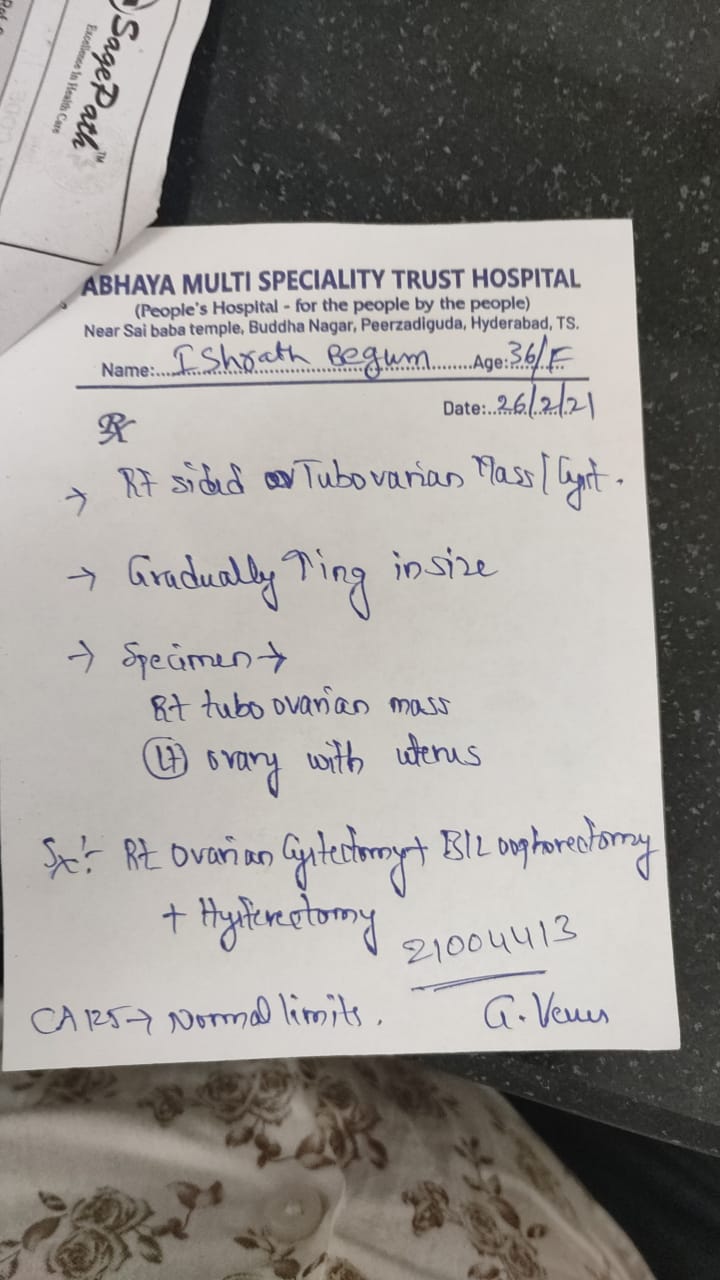 SagePath™
Excellence In Health Care
CODE
ABHAYA MULTI SPECIALITY TRUST HOSPITAL
(People's Hospital - for the people by the people)
Near Sai baba temple, Buddha Nagar, Peerzadiguda, Hyderabad, TS.
Name:....IShrath Begum........Age:36/F
Date:..26/2/21
Rx
→ Rt sided Tubovarian Mass / Cyst.
→ Gradually ↑ing in size
→ Specimen →
Rt tubo ovarian mass
Lt ovary with uterus
Sx:- Rt ovarian Cystectomy + B/L oophorectomy
+ Hysterectomy
21004413
CA 125 → Normal limits.
G.